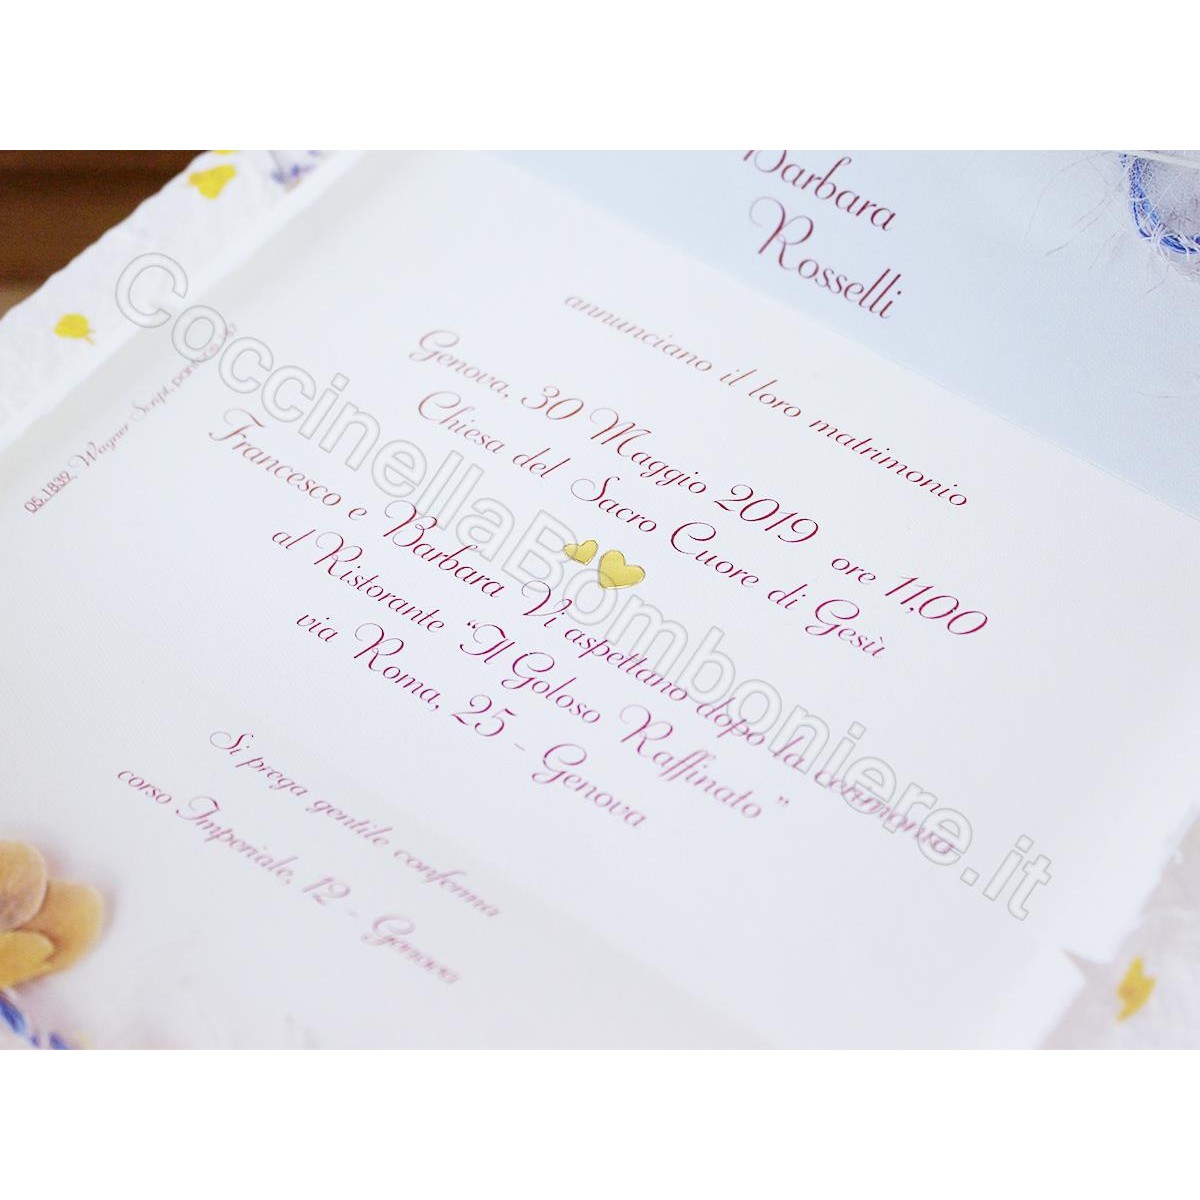 Barbara
Rosselli
annunciano il loro matrimonio
Genova, 30 Maggio 2019 ore 11,00
Chiesa del Sacro Cuore di Gesù
Francesco e Barbara Vi aspettano dopo la cerimonia
al Ristorante "Il Goloso Raffinato"
via Roma, 25 - Genova
Si prega gentile conferma
corso Imperiale, 12 - Genova
05.1832 Wagner Script,
CoccinellaBomboniere.it